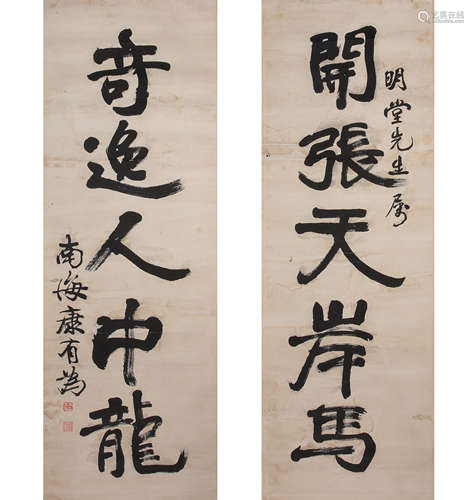 開張天岸馬
明堂先生属
奇逸人中龍
南海康有為